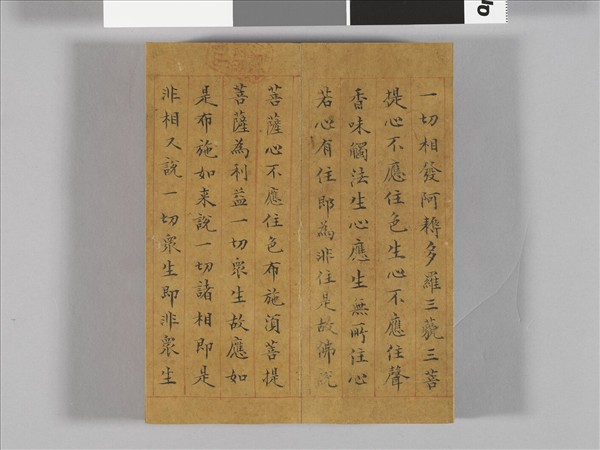 一切相發阿耨多羅三藐三菩
提心不應住色生心不應住聲
香味觸法生心應生無所住心
若心有住即為非住是故佛說
菩薩心不應住色布施須菩提
菩薩為利益一切眾生故應如
是布施如来說一切諸相即是
非相又說一切眾生即非眾生